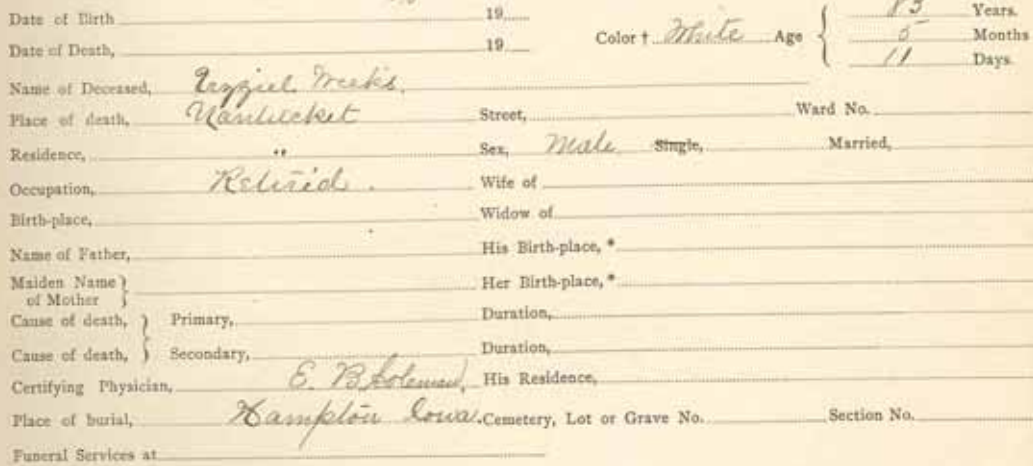 Date of Birth 19 Years.
Date of Death, 19 Color † White Age 5 Months
11 Days.
Name of Deceased, Weeks.
Place of death, Nantucket Street, Ward No.
Residence, " Sex, Male Single, Married,
Occupation, Retired. Wife of
Birth-place, Widow of
Name of Father, His Birth-place, *
Maiden Name of Mother Her Birth-place, *
Cause of death, Primary, Duration,
Cause of death, Secondary, Duration,
Certifying Physician, E. B. Coleman, His Residence,
Place of burial, Hampton Iowa. Cemetery, Lot or Grave No. Section No.
Funeral Services at